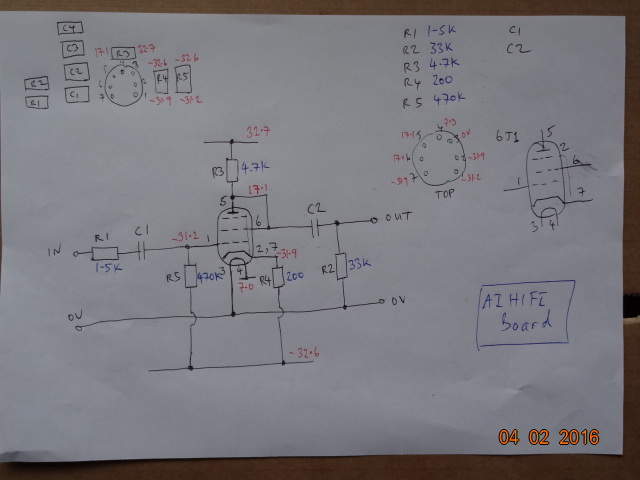 C4
C3
17.1 R3 22.7
C2
-32.6
-32.6
R2
R4
R5
R1
C1
-31.9
-31.2
R1 1-5K
R2 33K
R3 4.7K
R4 200
R5 470K
C1
C2
7.3
17.1 5
0V
17.1 6
-31.9
-31.9 7
-31.2
TOP
6J1
5
2
6
1
7
3 4
32.7
R3 4.7K
17.1
5
6
C2
OUT
IN
R1
C1
-31.2
1
2,7
-31.9
1-5K
R5 470K
3
4
7.0
R4 200
R2 33K
0V
0V
-32.6
AIHIFI
Board
04 02 2016